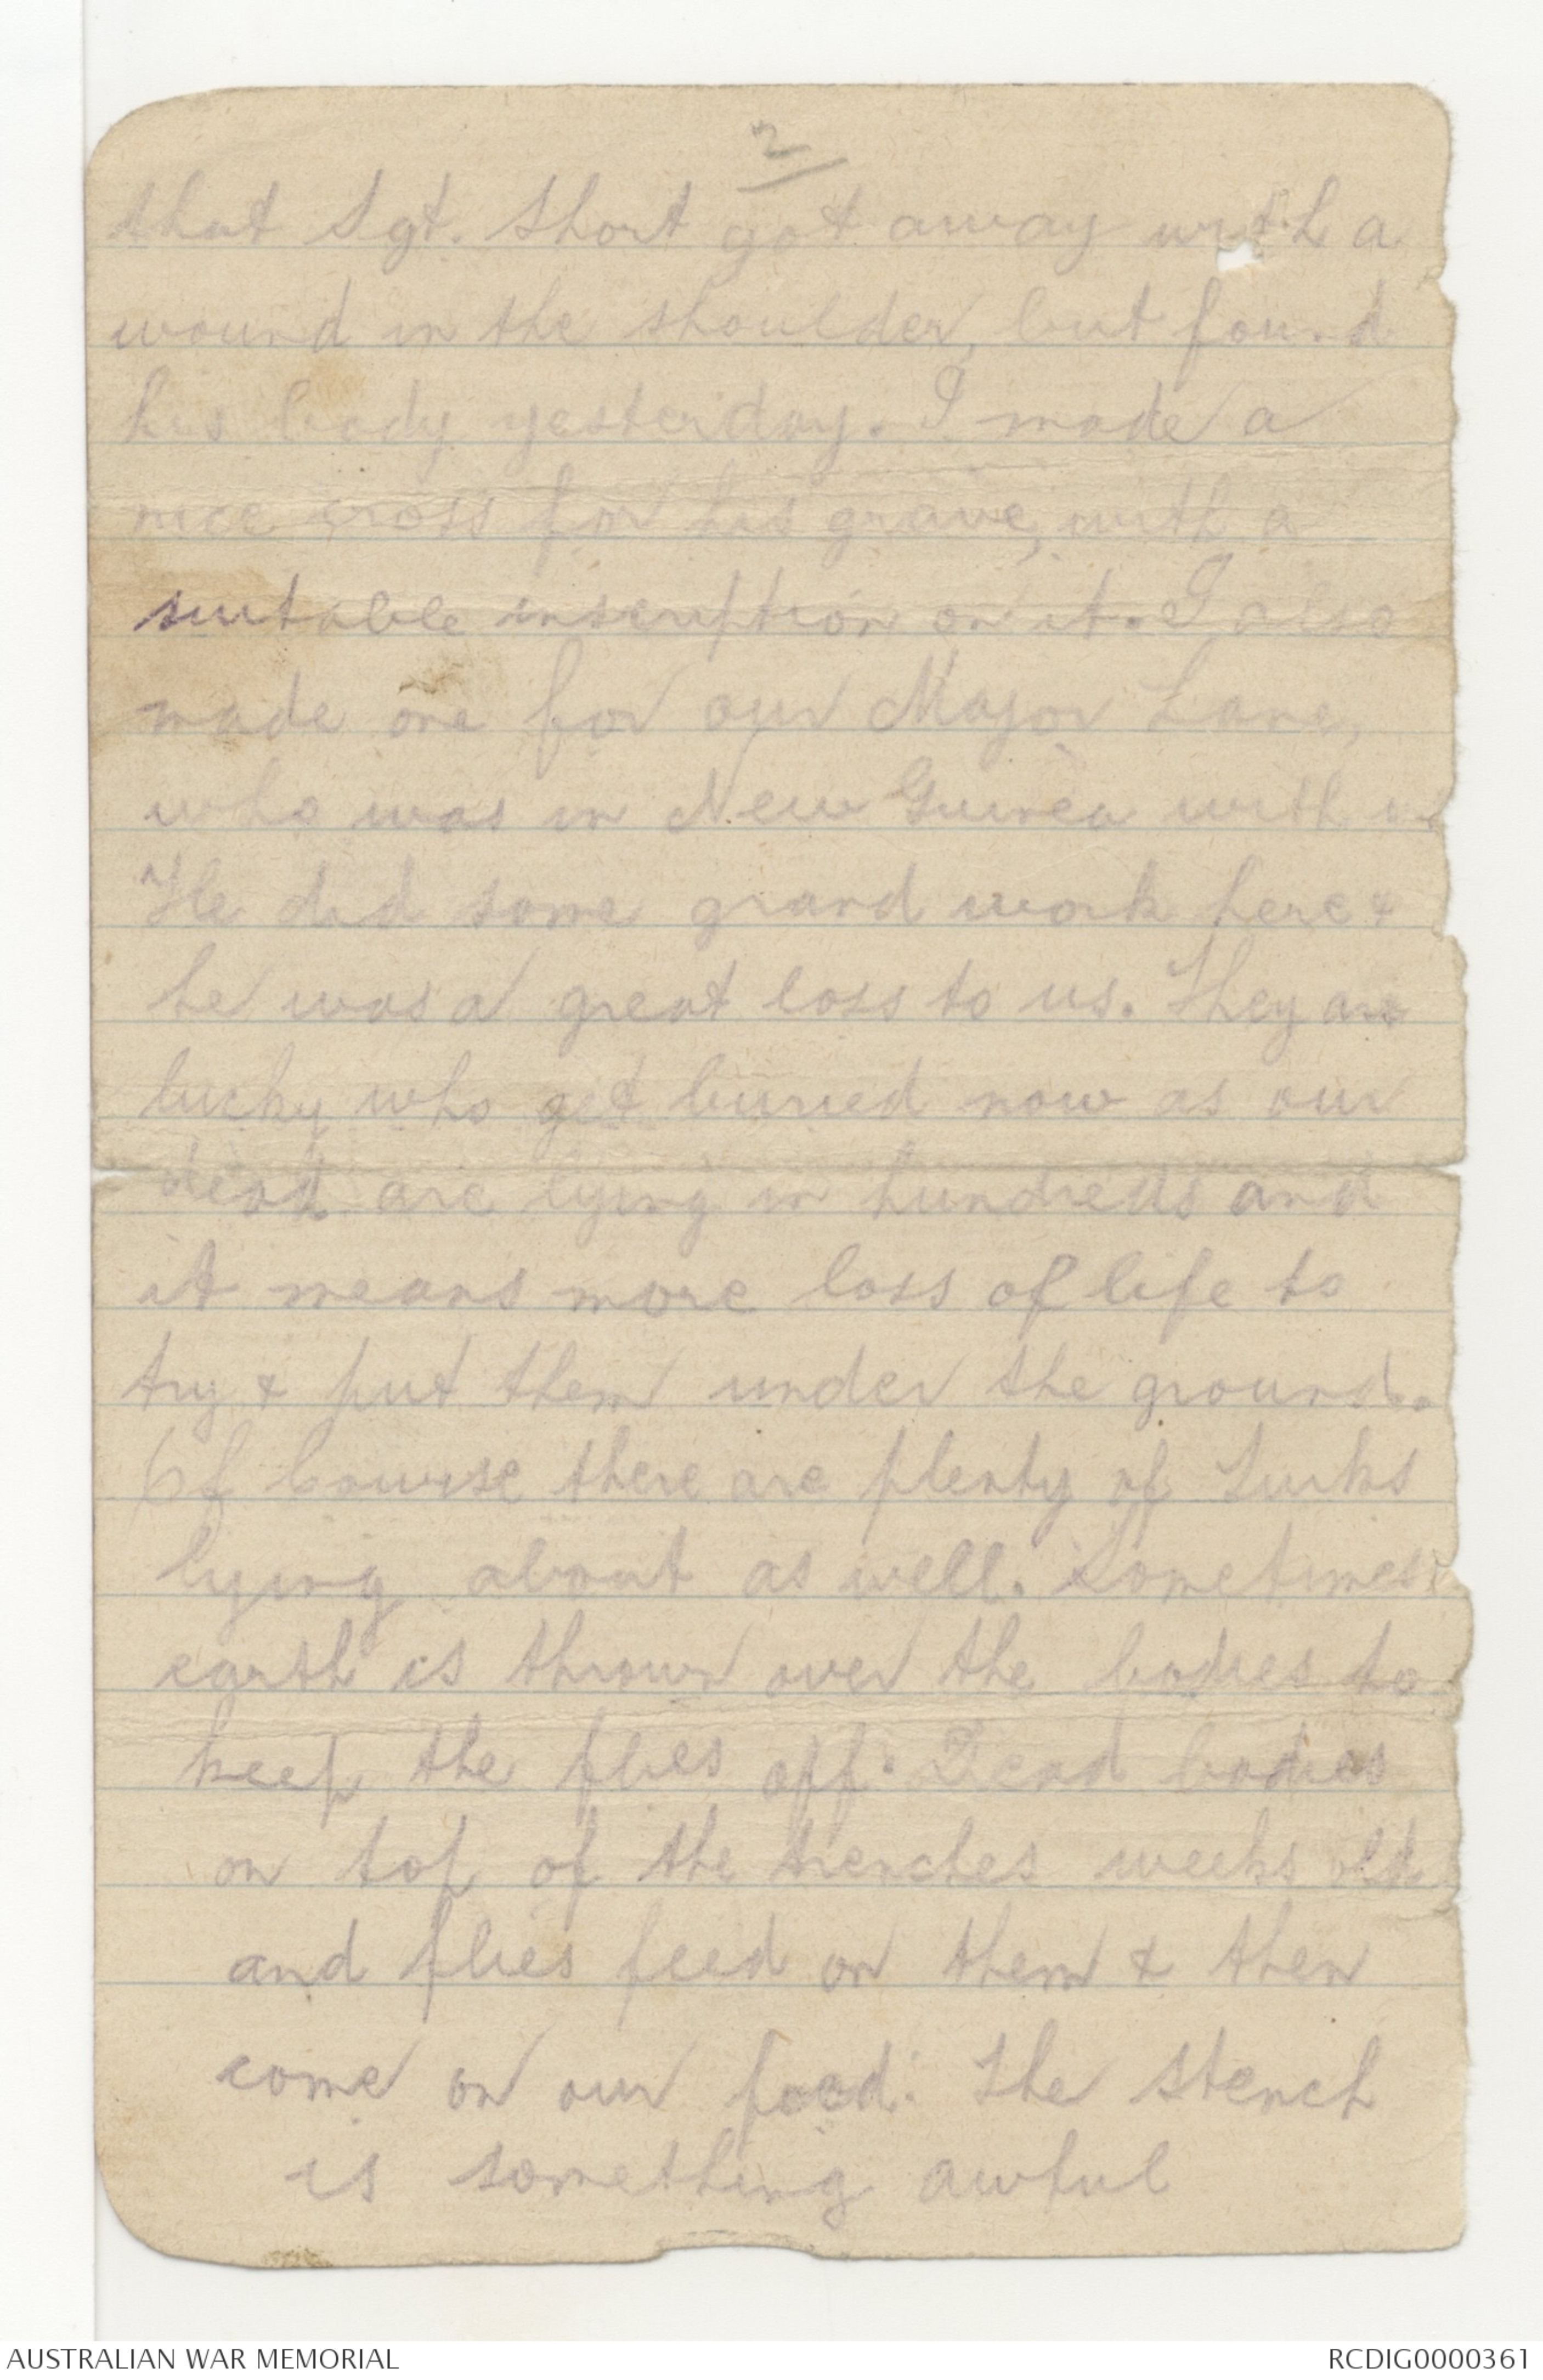 2
that Sgt. Short got away with a
wound in the shoulder, but found
his body yesterday. I made a
nice cross for his grave, with a
suitable inscription on it. I also
made one for our Major Lane,
who was in New Guinea with us
He did some grand work here &
he was a great loss to us. They are
lucky who get buried now as our
dead are lying in hundreds and
it means more loss of life to
try & put them under the ground.
Of course there are plenty of Turks
lying about as well. Sometimes
earth is thrown over the bodies to
keep the flies off. Dead bodies
on top of the trenches weeks old
and flies feed on them & then
come on our food. The stench
is something awful
AUSTRALIAN WAR MEMORIAL
RCDIG0000361